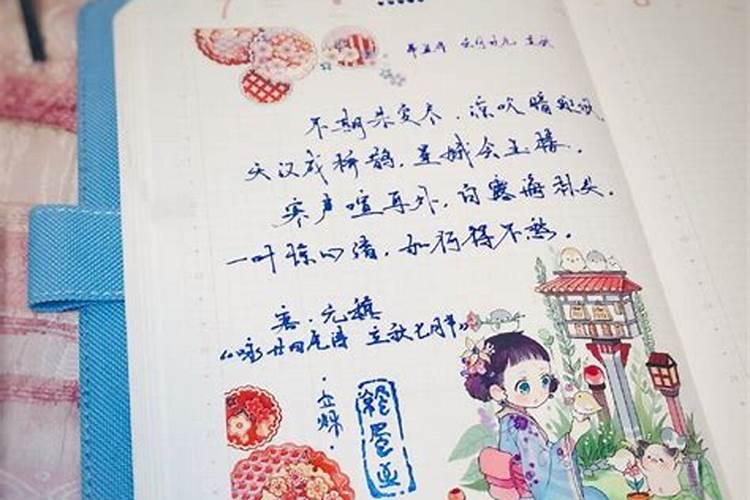 六月廿九 立秋
不期朱夏尽,凉吹暗迎秋。
天汉成桥鹊,星娥会玉楼。
寒声喧耳外,白露滴林头。
一叶惊心绪,如何得不愁。
唐·元稹
《咏廿四气诗 立秋七月节》
·立秋·